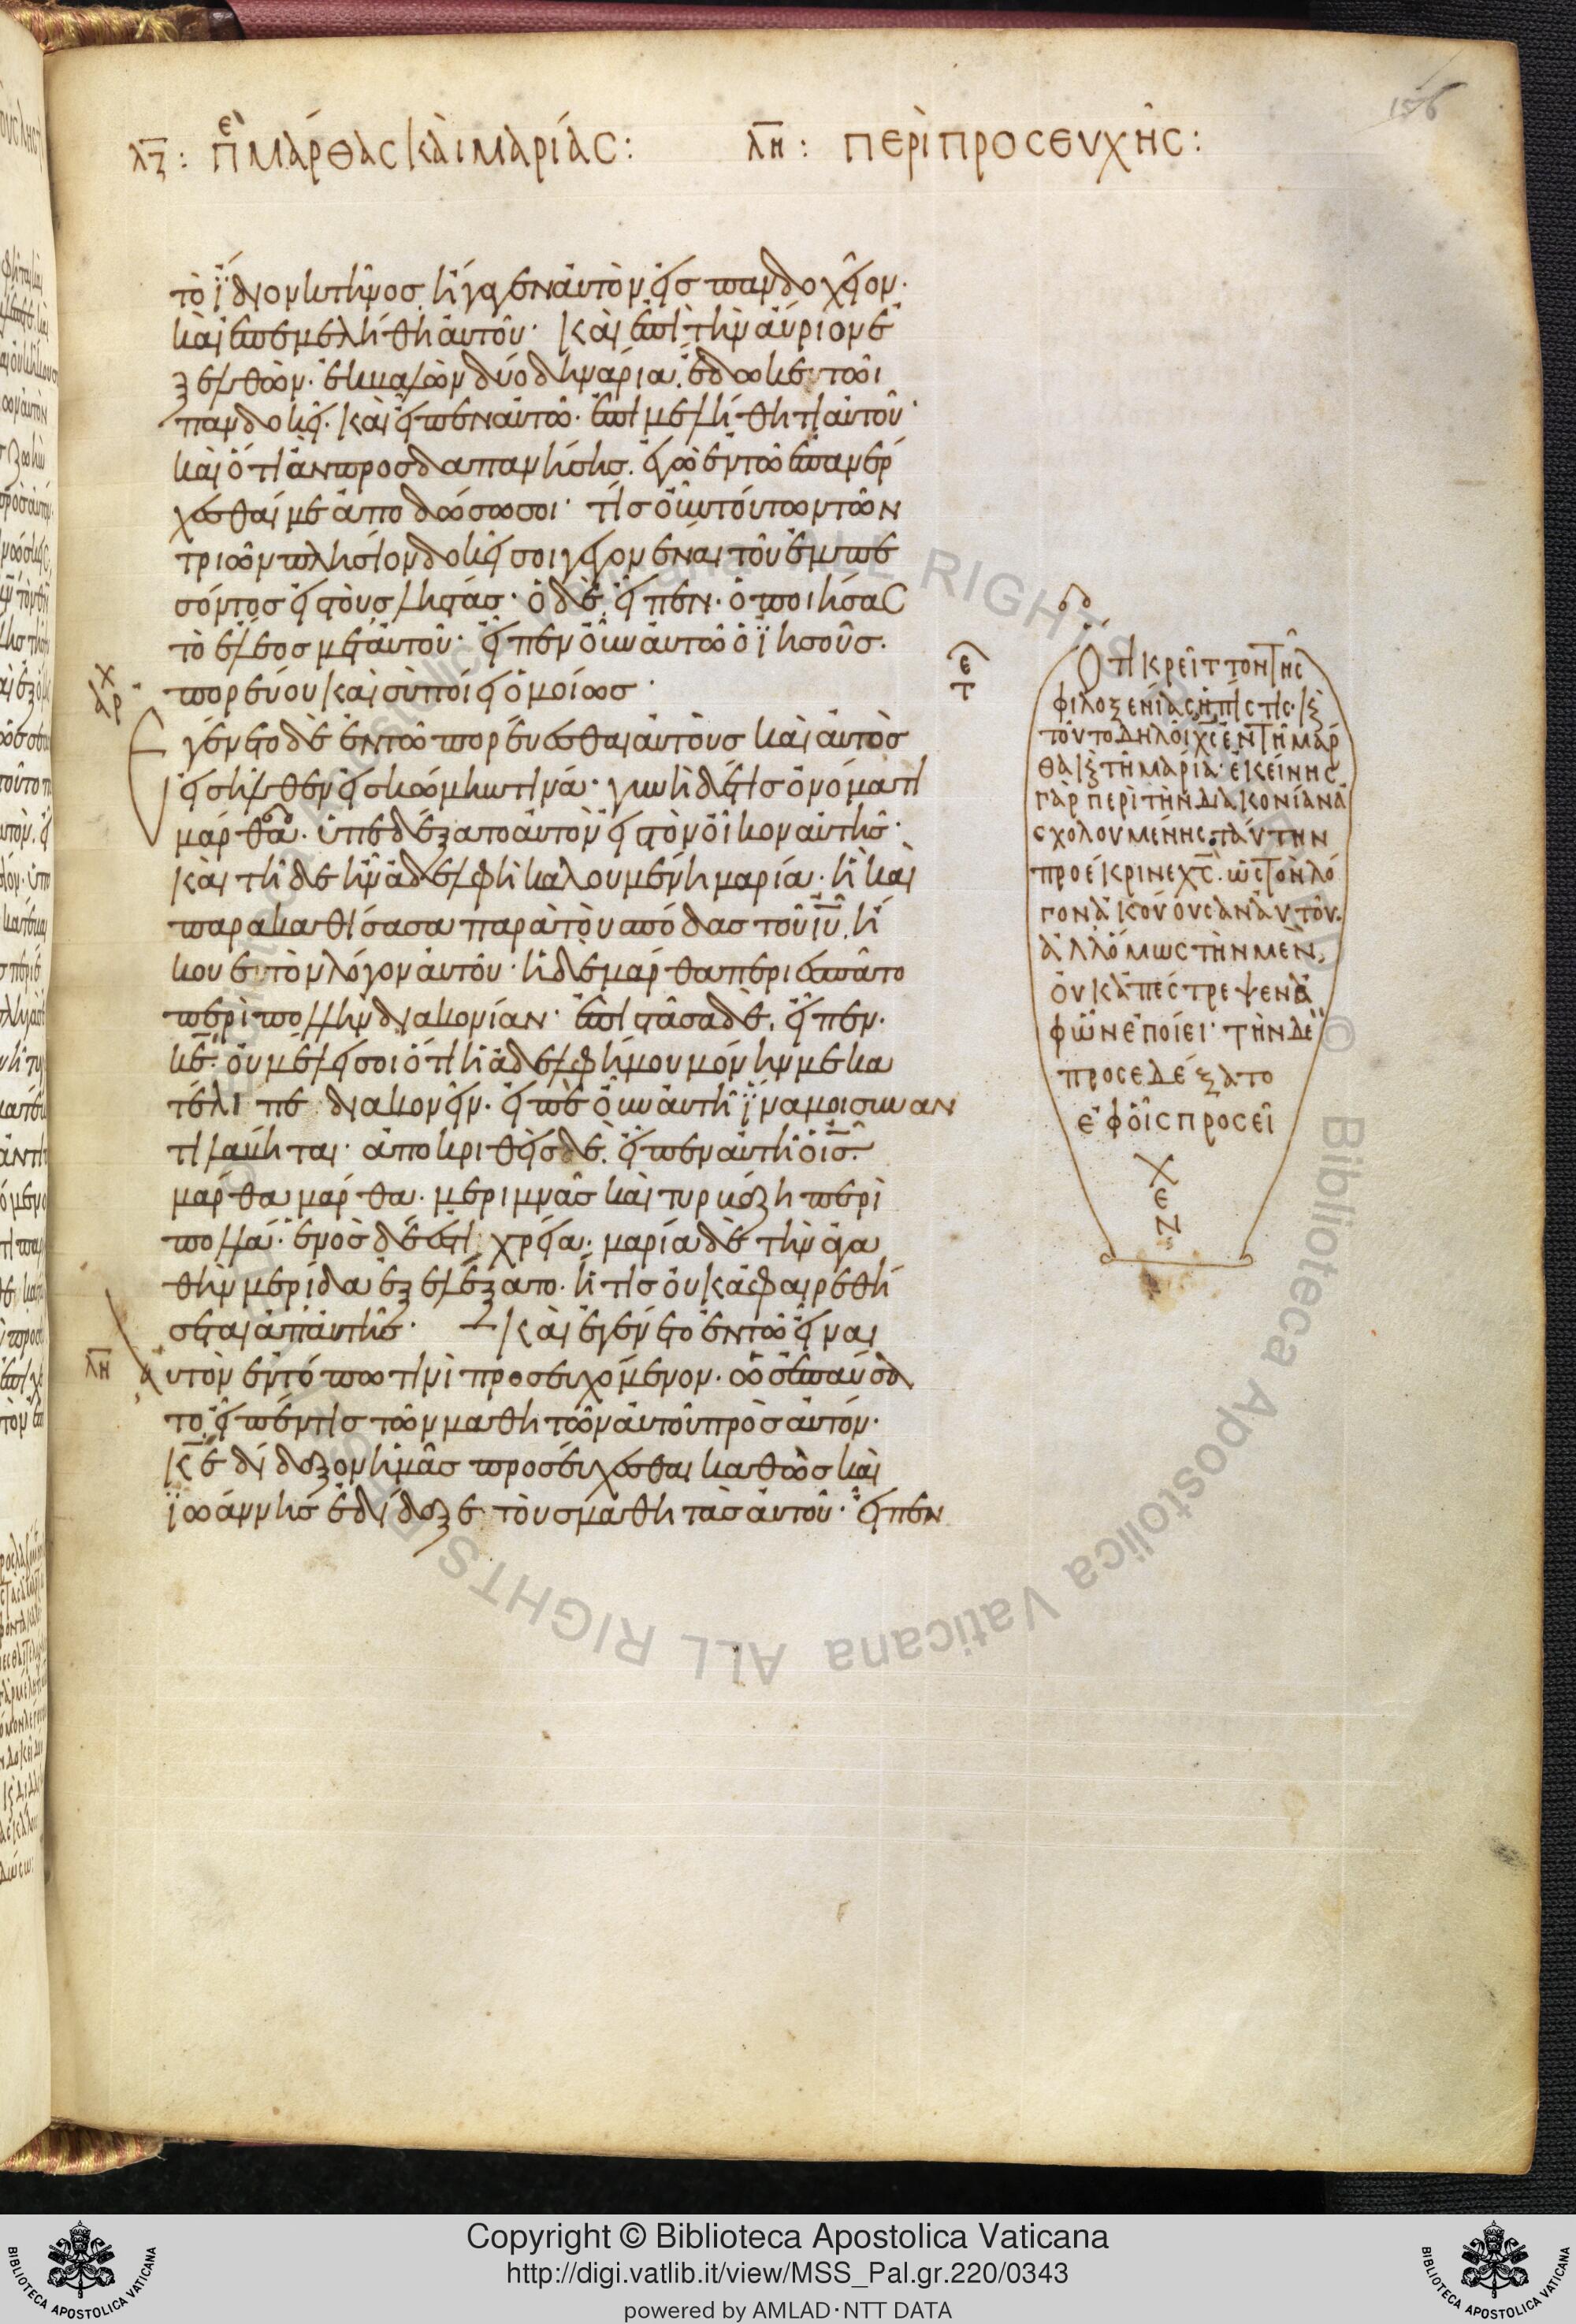 156
λζ: πε Μάρθας καὶ Μαρίας: λη: περὶ προσευχῆς:
τὸ ἴδιον κτῆνος. ἤγαγεν αὐτὸν εἰς πανδοχεῖον·
καὶ ἐπεμελήθη αὐτοῦ· καὶ ἐπὶ τὴν αὔριον ἐ
ξελθὼν· ἐκβαλὼν δύο δηνάρια. ἔδωκεν τῶι
πανδοκεῖ· καὶ εἶπεν αὐτῶ· ἐπιμελήθητι αὐτοῦ·
καὶ ὅτι ἂν προσδαπανήσης. ἐγὼ ἐν τῶ ἐπανέρ
χεσθαί με ἀποδώσω σοι· τίς οὖν τούτων τῶν
τριῶν πλησίον δοκεῖ σοι γεγονέναι τοῦ ἐμπε
σόντος εἰς τοὺς ληστάς· ὁ δὲ εἶπεν· ὁ ποιήσας
τὸ ἔλεος μετ αὐτοῦ· εἶπεν οὖν αὐτῶ ὁ ἰησοῦς.
πορεύου καὶ σὺ ποίει ὁμοίως·
γένετο δὲ ἐν τῶ πορεύεσθαι αὐτοὺς καὶ αὐτὸς
εἰσῆλθεν εἰς κώμην τινά· γυνὴ δέ τις ὀνόματι
μάρθα· ὑπεδέξατο αὐτὸν εἰς τὸν οἶκον αὐτῆς·
καὶ τῆδε ἦν ἀδελφὴ καλουμένη μαρία· ἣ καὶ
παρακαθίσασα παρὰ τοὺς πόδας τοῦ ιυ. ἤ
κουε τὸν λόγον αὐτοῦ· ἡ δὲ μάρθα περιεσπᾶτο
περὶ πολλὴν διακονίαν· ἐπιστᾶσα δὲ. εἶπεν·
κε. οὐ μέλει σοι ὅτι ἡ ἀδελφή μου μόνην με κα
τέλιπε διακονεῖν· εἰπὲ οὖν αὐτῆ ἵνα μοι συναν
τιλάβηται· ἀποκριθεὶς δὲ. εἶπεν αὐτῆ ὁ ις.
μάρθα μάρθα· μεριμνᾶς καὶ τυρβάζη περὶ
πολλά· ἑνὸς δέ ἐστι χρεία· μαρία δὲ τὴν ἀγα
θὴν μερίδα ἐξελέξατο· ἥτις οὐκ ἀφαιρεθή
σεται ἀπ αὐτῆς· καὶ ἐγένετο ἐν τῶ εἶναι
λη αὐτὸν ἐν τόπω τινὶ προσευχόμενον· ὡς ἐπαύσα
το. εἶπέν τις τῶν μαθητῶν αὐτοῦ πρὸς αὐτόν·
κε δίδαξον ἡμᾶς προσεύχεσθαι καθὼς καὶ
ἰωάννης ἐδίδαξε τοὺς μαθητὰς αὐτοῦ· εἶπεν
Ὅτι κρεῖττον τῆς
φιλοξενίας ἡ πίστις· κ
τοῦτο δηλοῖ χς ἐν τῆ μάρ
θα κ τῆ μαρία· ἐκείνης
γὰρ περὶ τὴν διακονίαν ἀ
σχολουμένης. ταύτην
προέκρινε χς. ὡς τὸν λό
γον ἀκούουσαν αὐτοῦ.
ἀλλ ὅμως τὴν μὲν.
οὐκ ἀπέστρεψεν ἀ
φ ὧν ἐποίει· τὴν δὲ
προσεδέξατο
ἐφ οἷς προσεῖ
χ
ε
ν
Copyright © Biblioteca Apostolica Vaticana
http://digi.vatlib.it/view/MSS_Pal.gr.220/0343
powered by AMLAD·NTT DATA
BIBLIOTECA APOSTOLICA VATICANA
BIBLIOTECA APOSTOLICA VATICANA